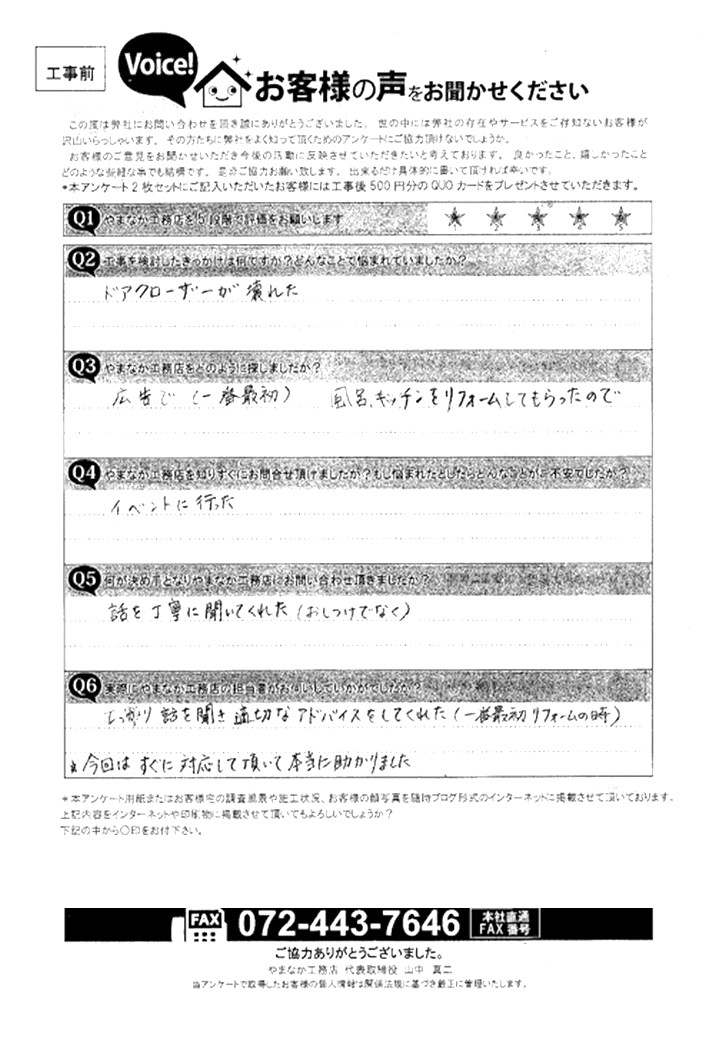 工事前
Voice!
お客様の声をお聞かせください
この度は弊社にお問い合わせを頂き誠にありがとうございました。 世の中には弊社の存在やサービスをご存知ないお客様が
沢山いらっしゃいます。 その方たちに弊社をよく知って頂くためのアンケートにご協力頂けないでしょうか。
お客様のご意見をお聞かせいただき今後の活動に反映させていただきたいと考えております。 良かったこと、嬉しかったこと
どのような些細な事でも結構です。 是非ご協力お願い致します。 出来るだけ具体的に書いて頂ければ幸いです。
*本アンケート2枚セットにご記入いただいたお客様には工事後500円分のQUOカードをプレゼントさせていただきます。
Q1 やまなか工務店を5段階で評価をお願いします
Q2 工事を検討したきっかけは何ですか?どんなことで悩まれていましたか?
ドアクローザーが壊れた
Q3 やまなか工務店をどのように探しましたか?
広告で(一番最初) 風呂、キッチンをリフォームしてもらったので
Q4 やまなか工務店を知りすぐにお問合せ頂けましたか?もし悩まれたとしたらどんなことがご不安でしたか?
イベントに行った
Q5 何が決め手となりやまなか工務店にお問い合わせ頂きましたか?
話を丁寧に聞いてくれた(おしつけでなく)
Q6 実際にやまなか工務店の担当者がお伺いしていかがでしたか?
しっかり話を聞き適切なアドバイスをしてくれた(一番最初リフォームの時)
*今回はすぐに対応して頂いて本当に助かりました
*本アンケート用紙またはお客様宅の調査風景や施工状況、お客様の顔写真を随時ブログ形式のインターネットに掲載させて頂いております。
上記内容をインターネットや印刷物に掲載させて頂いてもよろしいでしょうか?
下記の中から〇印をお付下さい。
FAX 072-443-7646 本社直通FAX番号
ご協力ありがとうございました。
やまなか工務店 代表取締役 山中 真二
当アンケートで取得したお客様の個人情報は関係法規に基づき厳正に管理いたします。